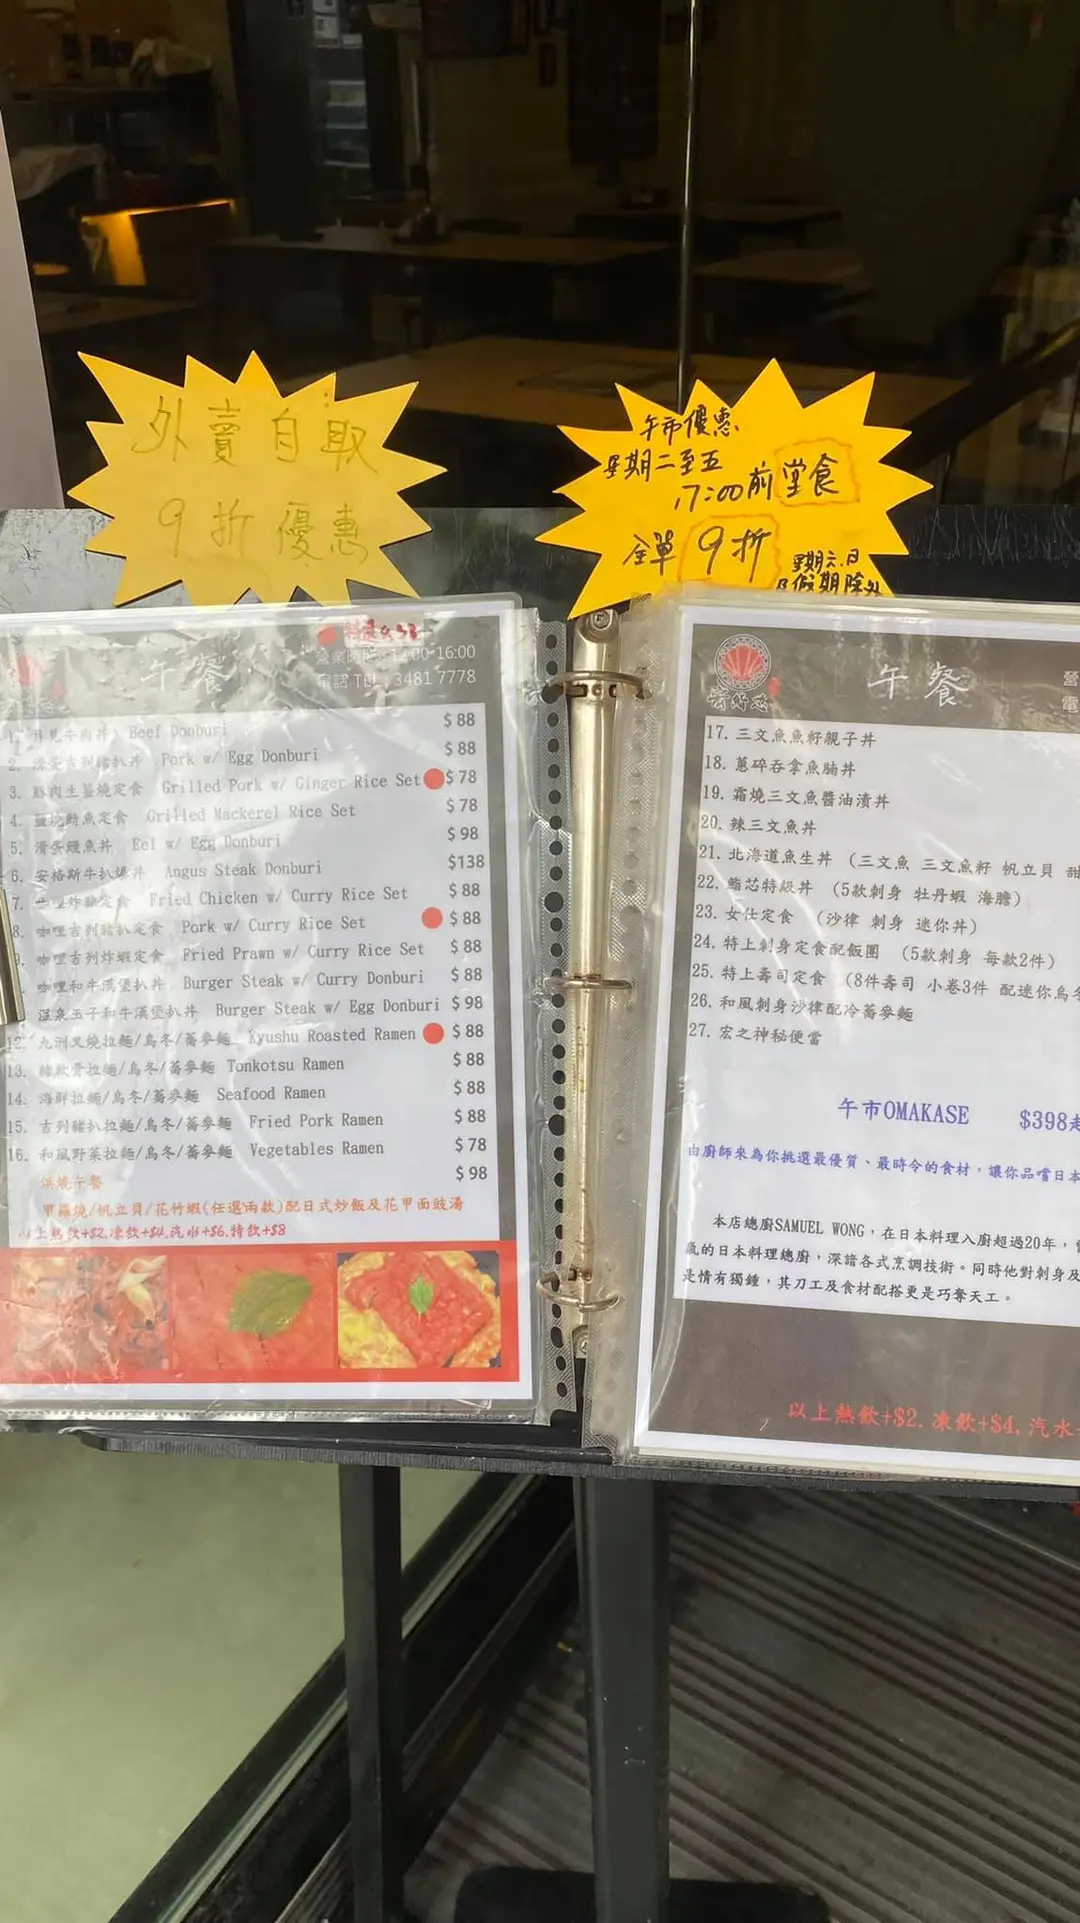 外賣自取
9折優惠
午市優惠
星期二至五
17:00前堂食
全單9折
星期六.日
及假期除外
午餐
營業時間:12:00-16:00
電話 TEL:3481 7778
牛肉丼 Beef Donburi $88
2. 滑蛋吉列豬扒丼 Pork w/ Egg Donburi $88
3. 豚肉生薑燒定食 Grilled Pork w/ Ginger Rice Set $78
4. 鹽燒鯖魚定食 Grilled Mackerel Rice Set $78
5. 滑蛋鰻魚丼 Eel w/ Egg Donburi $98
6. 安格斯牛扒爆丼 Angus Steak Donburi $138
7. 咖哩炸雞定食 Fried Chicken w/ Curry Rice Set $88
8. 咖哩吉列豬扒定食 Pork w/ Curry Rice Set $88
咖哩吉列炸蝦定食 Fried Prawn w/ Curry Rice Set $88
咖哩和牛漢堡扒丼 Burger Steak w/ Curry Donburi $88
溫泉玉子和牛漢堡扒丼 Burger Steak w/ Egg Donburi $98
12. 九洲叉燒拉麵/烏冬/蕎麥麵 Kyushu Roasted Ramen $88
13. 豬軟骨拉麵/烏冬/蕎麥麵 Tonkotsu Ramen $88
14. 海鮮拉麵/烏冬/蕎麥麵 Seafood Ramen $88
15. 吉列豬扒拉麵/烏冬/蕎麥麵 Fried Pork Ramen $88
16. 和風野菜拉麵/烏冬/蕎麥麵 Vegetables Ramen $78
燒午餐 $98
甲羅燒/帆立貝/花竹蝦(任選兩款)配日式炒飯及花甲面豉湯
上熱飲+$2.凍飲+$4.汽水+$6.特飲+$8
午餐
營
電
17. 三文魚魚籽親子丼
18. 蔥碎吞拿魚腩丼
19. 霜燒三文魚醬油漬丼
20. 辣三文魚丼
21. 北海道魚生丼 (三文魚 三文魚籽 帆立貝 甜
22. 鮨芯特級丼 (5款刺身 牡丹蝦 海膽)
23. 女仕定食 (沙律 刺身 迷你丼)
24. 特上刺身定食配飯團 (5款刺身 每款2件)
25. 特上壽司定食 (8件壽司 小卷3件 配迷你烏冬
26. 和風刺身沙律配冷蕎麥麵
27. 宏之神秘便當
午市OMAKASE $398起
由廚師來為你挑選最優質、最時令的食材，讓你品嚐日本
本店總廚SAMUEL WONG，在日本料理入廚超過20年，曾
氣的日本料理總廚，深諳各式烹調技術。同時他對刺身及
是情有獨鍾，其刀工及食材配搭更是巧奪天工。
以上熱飲+$2.凍飲+$4,汽水